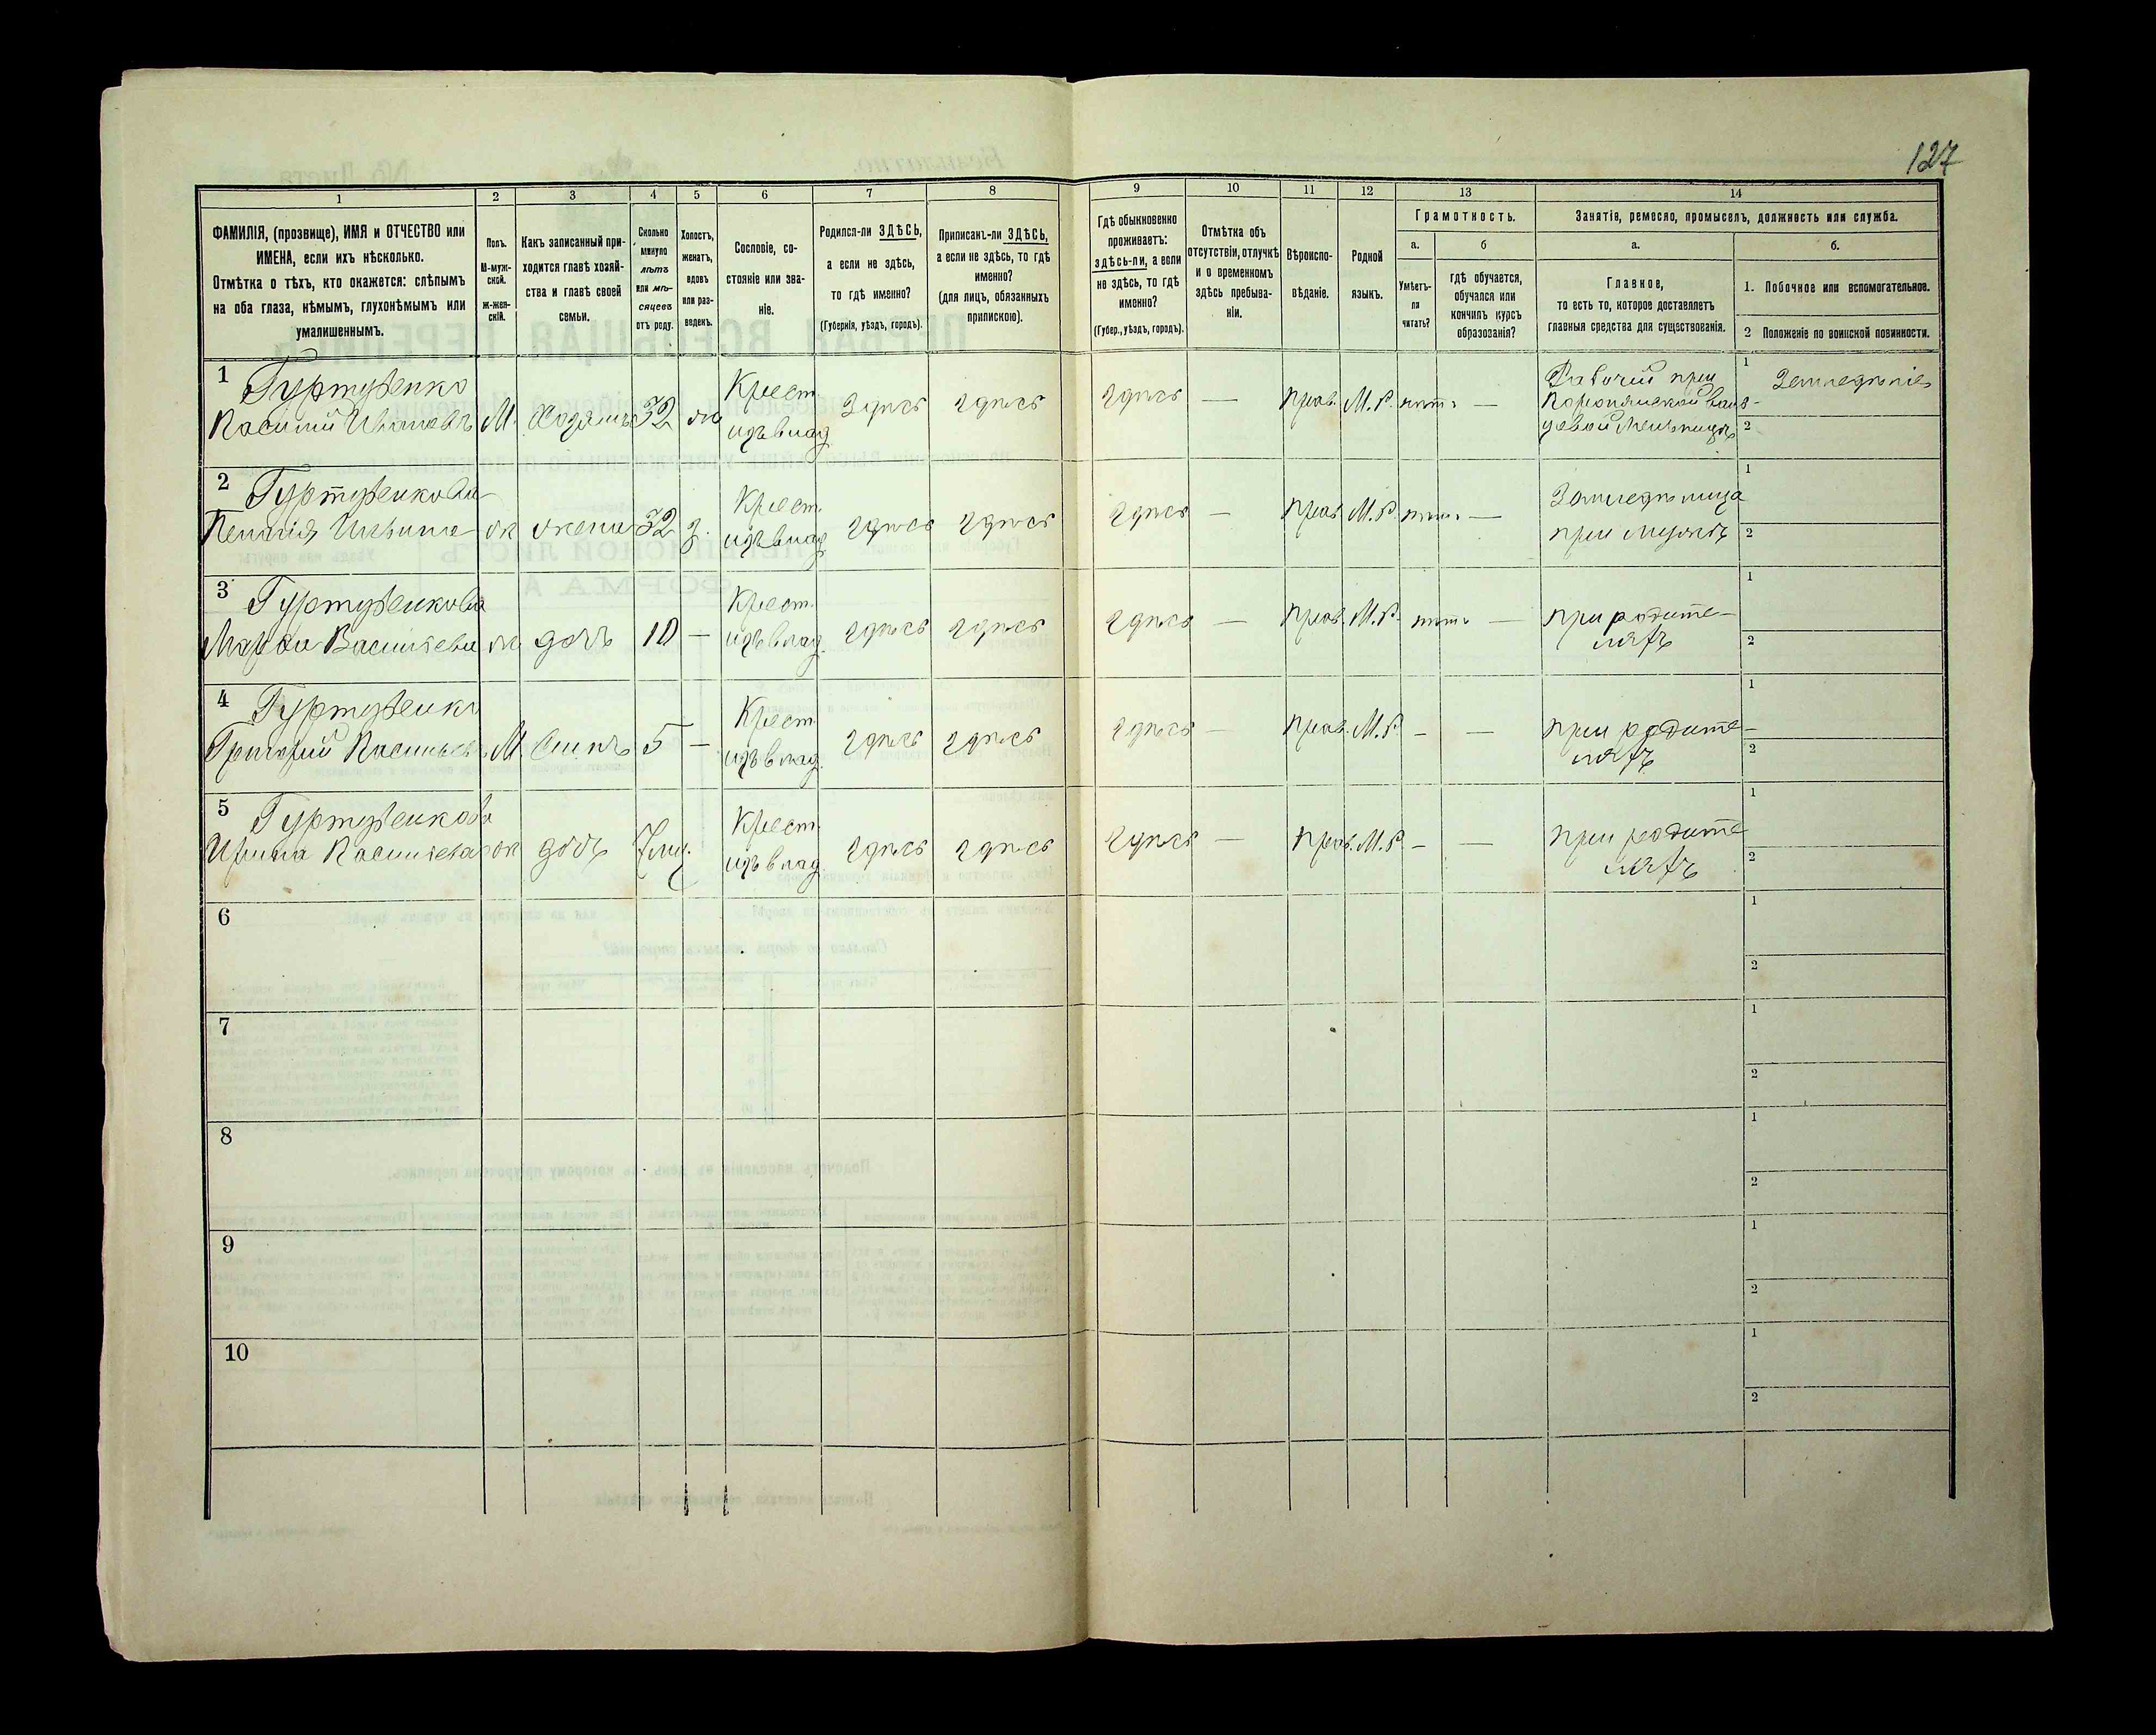 127
1 2 3 4 5 6 7 8 9 10 11 12 13 14
ФАМИЛІЯ, (прозвище), ИМЯ и ОТЧЕСТВО или
ИМЕНА, если ихъ нѣсколько.
Отмѣтка о тѣхъ, кто окажется: слѣпымъ
на оба глаза, нѣмымъ, глухонѣмымъ или
умалишеннымъ.
Полъ.
М-муж-
ской.
ж-жен-
скій.
Какъ записанный при-
ходится главѣ хозяй-
ства и главѣ своей
семьи.
Сколько
минуло
лѣтъ
или мѣ-
сяцевъ
отъ роду.
Холостъ,
женатъ,
вдовъ
или раз-
веденъ.
Сословіе, со-
стояніе или зва-
ніе.
Родился-ли ЗДѢСЬ,
а если не здѣсь,
то гдѣ именно?
(Губернія, уѣздъ, городъ).
Приписанъ-ли ЗДѢСЬ,
а если не здѣсь, то гдѣ
именно?
(для лицъ, обязанныхъ
припискою).
Гдѣ обыкновенно
проживаетъ:
здѣсь-ли, а если
не здѣсь, то гдѣ
именно?
(Губер., уѣздъ, городъ).
Отмѣтка объ
отсутствіи, отлучкѣ
и о временномъ
здѣсь пребыва-
ніи.
Вѣроиспо-
вѣданіе.
Родной
языкъ.
Грамотность.
а. б
Умѣетъ-
ли
читать?
гдѣ обучается,
обучался или
кончилъ курсъ
образованія?
Занятіе, ремесло, промыселъ, должность или служба.
а. б.
Главное,
то есть то, которое доставляетъ
главныя средства для существованія.
1. Побочное или вспомогательное.
2 Положеніе по воинской повинности.
1
Василий Ивановъ М. Хозяинъ 32 ж
Крест.
изъ влад.
Здѣсь здѣсь здѣсь — прав. М.Р. нѣтъ —
Рабочий при
мельницѣ
1 Земледѣліе
2
2
Ильина ж жена 32 з.
Крест.
изъ влад.
здѣсь здѣсь здѣсь — прав. М.Р. нѣтъ —
Земледѣлица
при мужѣ
1
2
3
Васильева ж дочь 10 —
Крест.
изъ влад.
здѣсь здѣсь здѣсь — прав. М.Р. нѣтъ —
при родите-
ляхъ
1
2
4
Григорий Васильевъ М. Сынъ 5 —
Крест.
изъ влад.
здѣсь здѣсь здѣсь — прав. М.Р. — —
при родите-
ляхъ
1
2
5
Ирина Васильева ж дочь 7 мц.
Крест.
изъ влад.
здѣсь здѣсь здѣсь — прав. М.Р. — —
при родите
ляхъ
1
2
6
1
2
7
1
2
8
1
2
9
1
2
10
1
2